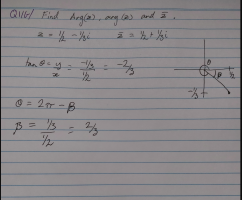 Q1(b) Find Arg(z), arg(z) and z̅.
z = 1/2 - 1/3 i    z̅ = 1/2 + 1/3 i
tan θ = y/x = (-1/3)/(1/2) = -2/3
1/2
θ
β
-1/3
θ = 2π - β
β = (1/3)/(1/2) = 2/3